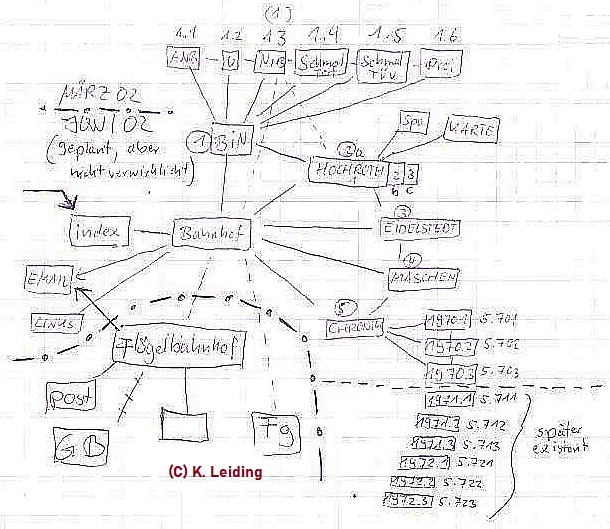 (1)
1.1 1.2 1.3 1.4 1.5 1.6
ANB U NHB Schmal Schmal Drei
TÜV
MÄRZ 02
JUNI 02
(geplant, aber
nicht verwirklicht)
1 BiN
Spu KARTE
2a
HOCHROTH 2 3
1 b c
3
EIDELSTEDT
index Bahnhof
4
MASCHEN
EMAIL
LINUS
5
CHRONIK
1970.1 5.701
1970.2 5.702
1970.3 5.703
Flügelbahnhof
Post
GB
Fg
1971.1 5.711
1971.2 5.712
1971.3 5.713
1972.1 5.721
1972.2 5.722
1972.3 5.723
später
existent
(C) K. Leiding